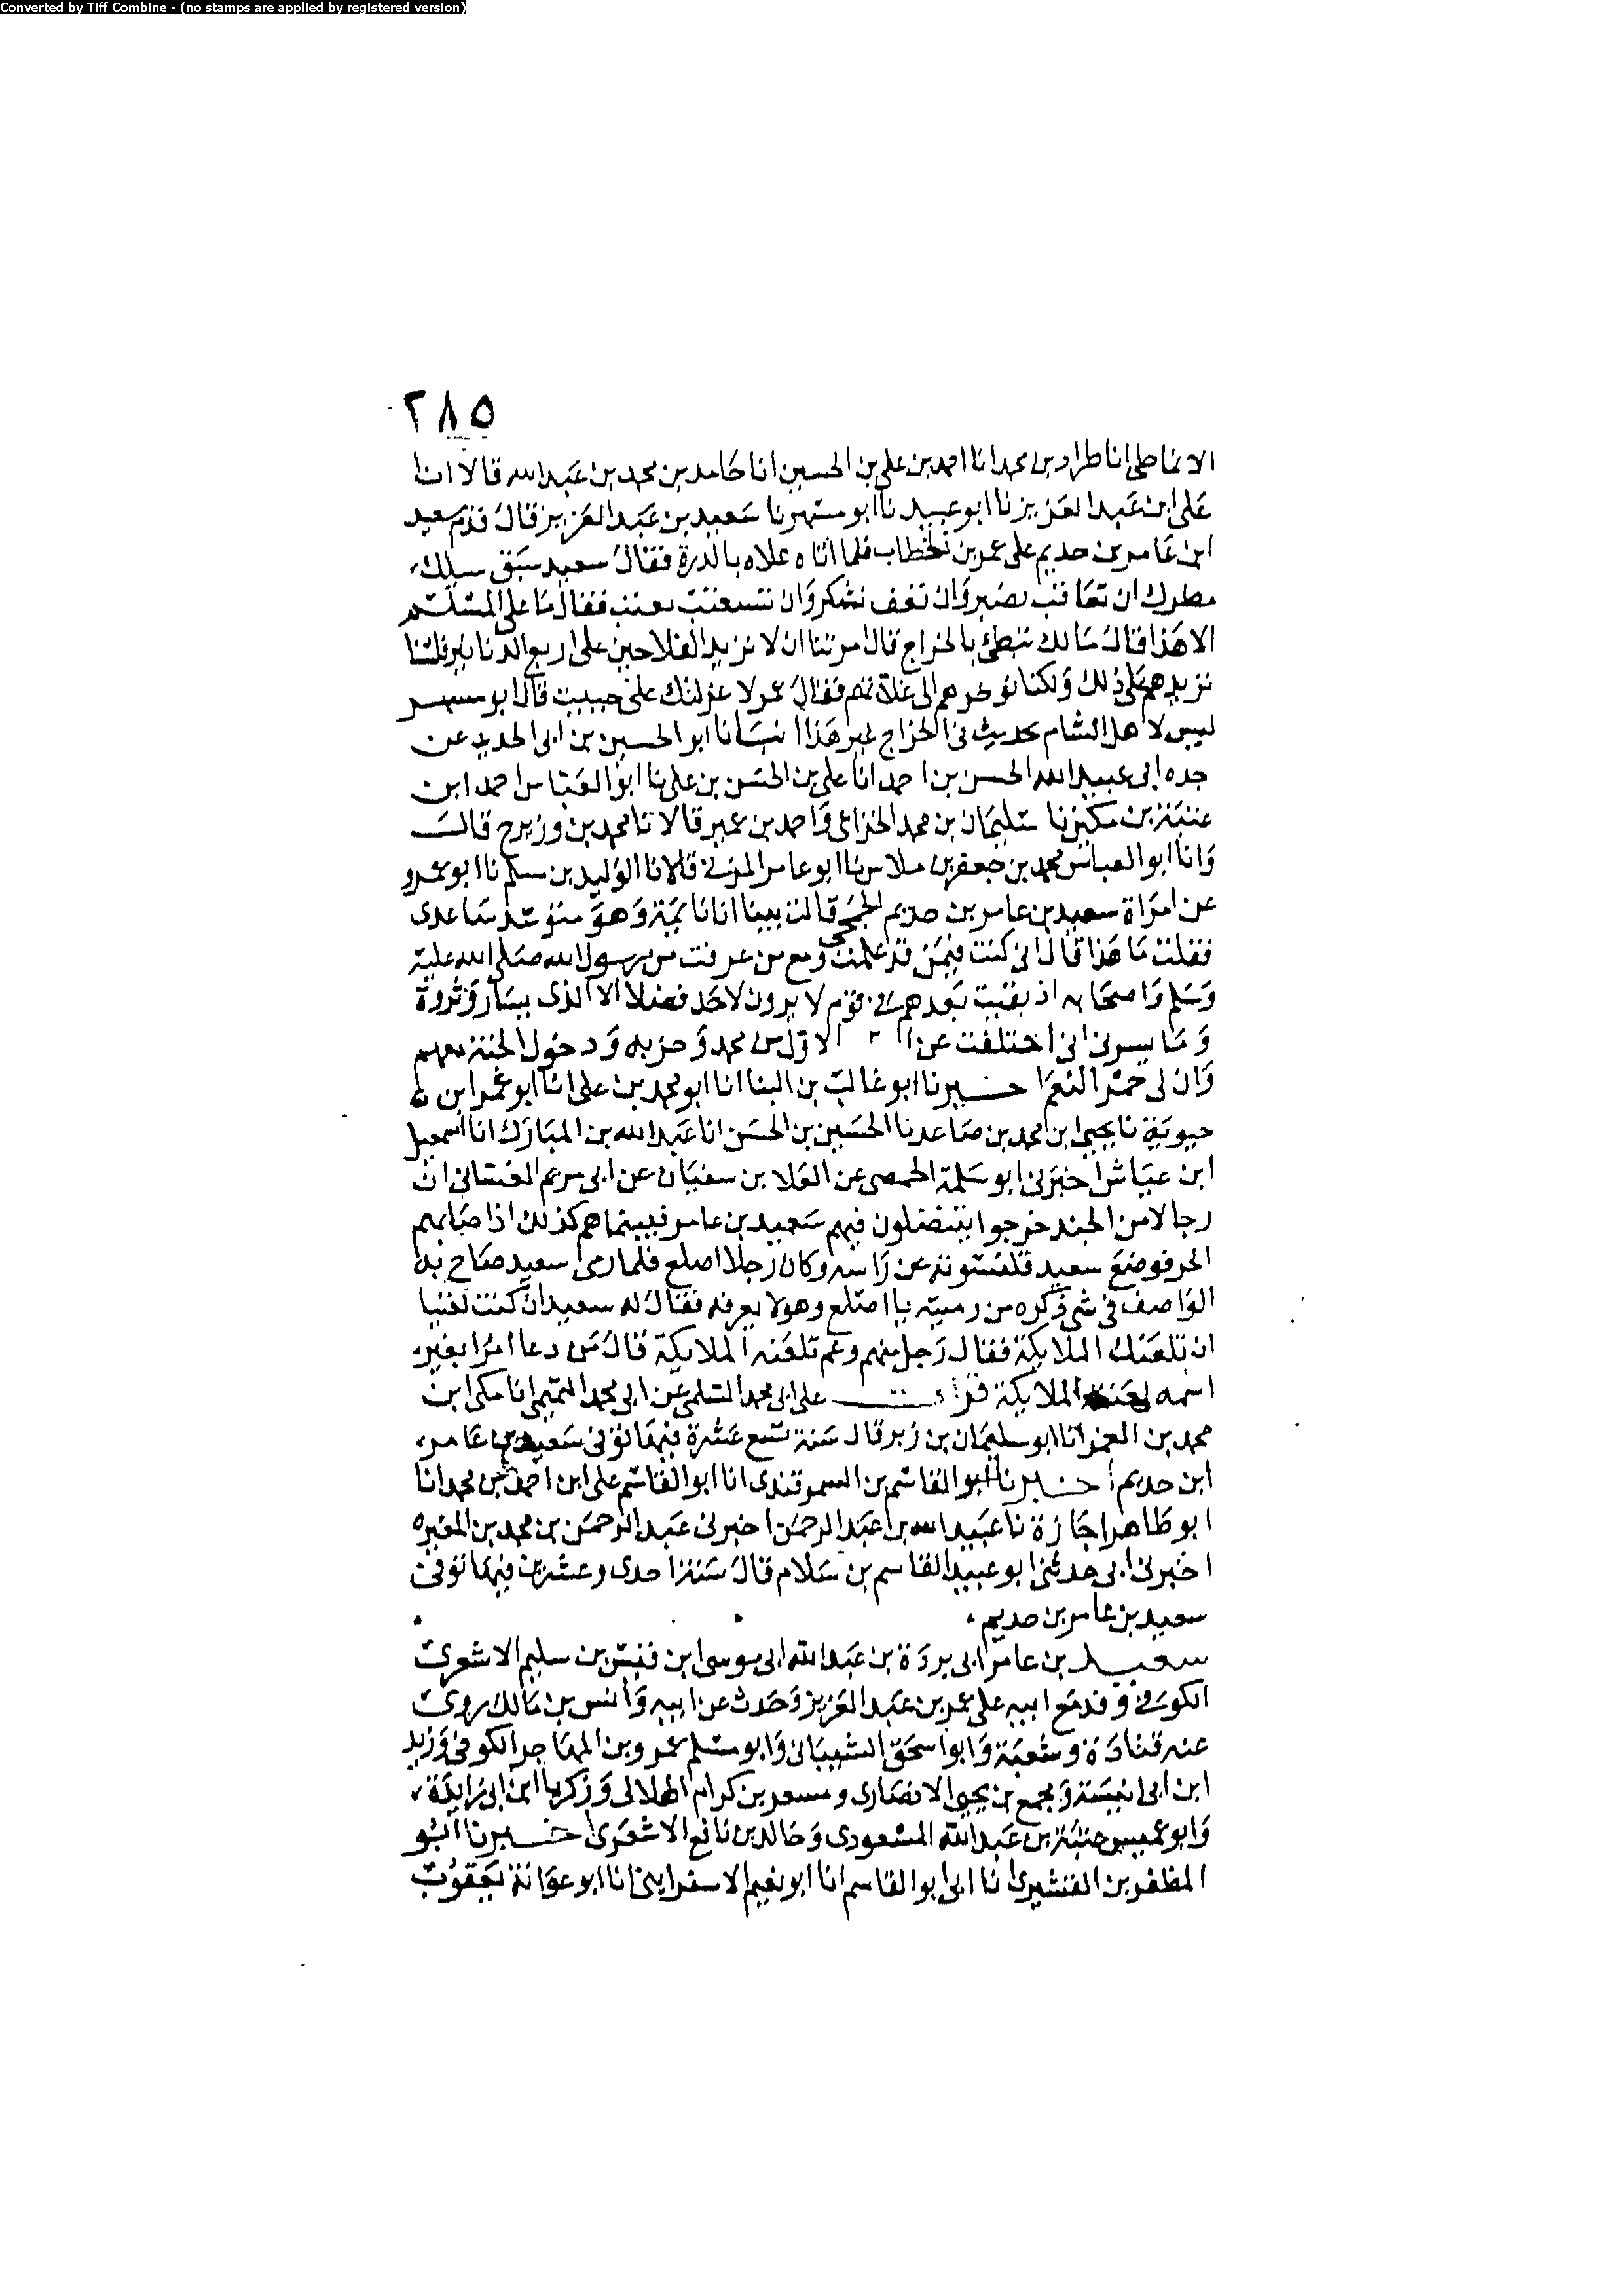 Converted by Tiff Combine - (no stamps are applied by registered version)
٢٨٥
الانماطى انا طراد بن محمد انا احمد بن على بن الحسين انا حَامد بن محمد بن عَبد الله قالا انا
عَلى ابن عَبد العَزيز نا ابو عبيد نا ابو مسْهر نا سَعيد بن عَبد العَزيز قال قدم سعيد
ابن عَامر بن حديم على عمر بن الخطاب فلما اتاه علاه بالدرة فقال سعيد سَبَق سيلك
مطرك ان تعَاقب نصبر وَان تعف نشكر وَان تستعتب نعتب فقال مَا على المسْلم
الا هَذا قال مَا لك تبطئ بالخراج قال امرتنا ان لا نزيد الفلاحين على اربع الدنانير فلسْنا
نزيدهم عَلى ذلك وَلكنا نؤخرهم الى غلاتهم فقال عمر لا عزلتك على حييت قال ابو مسهر
ليس لاهل الشام حديث فى الخراج غير هَذا انبَانا ابو الحسين بن ابى الحديد عن
جده ابى عبيد الله الحسن بن احمد انا على بن الحسَن بن على نا ابو العَباس احمد ابن
عتبَة بن مكين نا سَليمَان بن محمد الخزاعى وَاحمد بن عمير قالا نا محمد بن وزير ح قال
وَانا ابو العباس محمد بن جعفر بن ملاس نا ابو عامر المرى قالا نا الوَليد بن مسلم نا ابو عمرو
عن امرَاة سعيد بن عامر بن حديم الجمحى قالت بينا انا نايمَة وَهوَ متوَسد سَاعدى
فقلت مَا هَذا قال انى كنت فيمَن قد علمت ومع من عرفت من رسول الله صَلى الله عليْه
وَسَلم وَاصحَابه اذ بقيت بَعدهم فى قوم لا يرون لاحَد فضلا الا الذى يسَار وَثروة
وَمَا يسرنى انى اختلفت عن الاول من محمد وَحزبه وَدخول الجنة معهم
وَان لى حمْر النعَم اخبرنا ابو غالب بن البنا انا ابو محمد بن على انا ابو عمر ابن
حيويَة نا يحيى ابن محمد بن صَاعد نا الحسَين بن الحسَن انا عَبد الله بن المبَارك انا اسمعيل
ابن عيَاش اخبَرنى ابو سَلمة الحمصى عن العَلا بن سفيَان عن ابى مريم الغسَانى ان
رجالا من الجند خرجوا ينتضلون فيهم سَعيد بن عامر فبينما هم كذلك اذ اصَابهم
الحر فوضعَ سعيد قلنسوته عن رَاسه وكان رَجلا اصلع فلما رمى سعيد صَاح به
الوَاصف فى شى ذكره من رميته يا اصْلع وهو لا يعرفه فقال له سعيد ان كنت لغنيا
ان تلعَنك الملايكة فقال رَجل منهم وعم تلعَنه الملايكة قال مَن دعا امرا بغير
اسمه لعنته الملايكة قرات على ابى محمد السَلمى عن ابى محمد التميمى انا مكى ابن
محمد بن الغمر انا ابو سليمَان بن زبر قال سَنة تسْع عَشرة فيهَا توفى سَعيد بن عَامر
ابن حديم اخبرنا ابو القاسم بن السمرقندى انا ابو القاسَم على ابن احمد بن محمد انا
ابو طَاهر اجَازة نا عَبيد الله بن عَبد الرحمَن اخبرنى عَبد الرحمَن بن محمد بن المغيره
اخبرنى ابى حدثنى ابو عبيد القاسم بن سَلام قال سَنة احدى وعشرين فيهَا توفى
سعيد بن عامر بن حديم
سعيد بن عامر ابى بردَة بن عَبد الله ابى موسى ابن قيس بن سليم الاشعرى
الكوفى وفد مَع ابيه على عمر بن عَبد العَزيز وَحَدث عن ابيه وَانس بن مَالك روى
عنه قتادَة وشعبَة وَابو اسحَق الشيبَانى وَابو مسْلم عمرو بن المهَاجر الكوفى وَزيد
ابن ابى انيسَة وَمجمع بن يحيى الانصَارى ومسعر بن كدام الهلالى وَزكريا ابن ابى زايدَة
وَابو عميس عتبَة بن عَبد الله المسْعودى وَخالد بن نافع الاشعَرى اخبرنا ابو
المظفر بن القشيرى انا ابى ابو القاسم انا ابو نعيم الاسفراينى انا ابو عوَانة يَعقوب